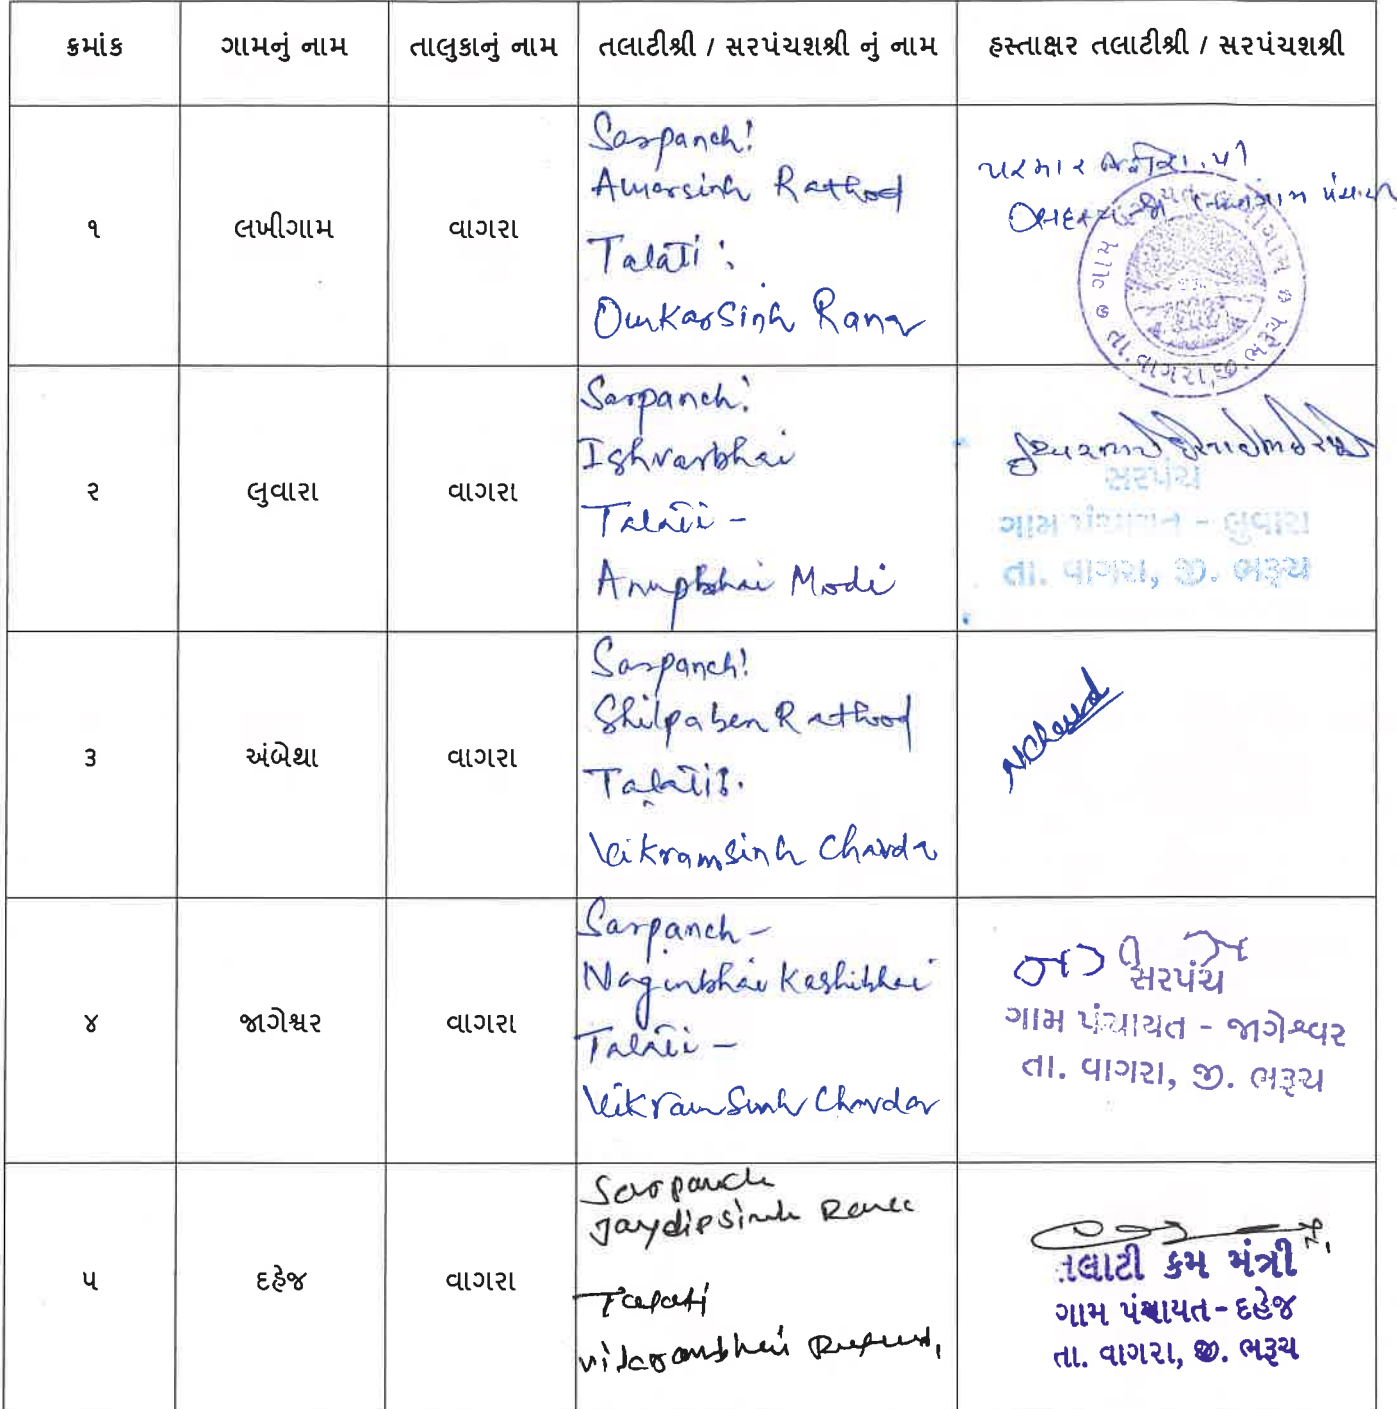 ક્રમાંક ગામનું નામ તાલુકાનું નામ તલાટીશ્રી / સરપંચશશ્રી નું નામ હસ્તાક્ષર તલાટીશ્રી / સરપંચશશ્રી
૧ લખીગામ વાગરા
Sarpanch:
Amarsinh Rathod
Talati :
Omkarsinh Rana
પરમાર
ગામ
તા. વાગરા, જી. ભરૂચ
૨ લુવારા વાગરા
Sarpanch:
Ishvarbhai
Talati -
Anupbhai Modi
સરપંચ
ગામ પંચાયત - લુવારા
તા. વાગરા, જી. ભરૂચ
૩ અંબેથા વાગરા
Sarpanch:
Shilpaben Rathod
Talati:
Vikramsinh Chavda
૪ જાગેશ્વર વાગરા
Sarpanch -
Naginbhai Kashibhai
Talati -
Vikramsinh Chavda
સરપંચ
ગામ પંચાયત - જાગેશ્વર
તા. વાગરા, જી. ભરૂચ
૫ દહેજ વાગરા
Sarpanch
Jaydipsinh Rana
Talati
તલાટી કમ મંત્રી
ગામ પંચાયત - દહેજ
તા. વાગરા, જી. ભરૂચ